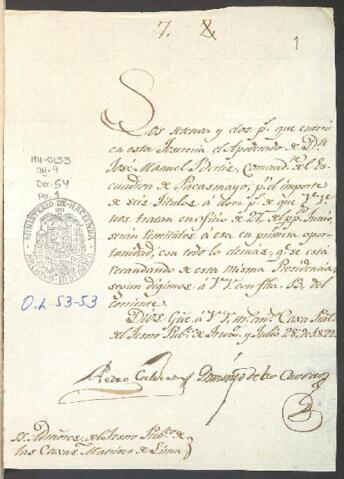 7. 8
1
MH-OL53
Caj. 9
Doc. 54
Fol. 1
MINISTERIO DE HACIENDA
O.L 53-53
Los setenta y dos p.s que enteró
en esta Tesoreria el Apoderado de D.n
José Manuel Comand.te del Es
cuadron de Pacasmayo, p.r el importe
de seis Titulos á doce p.s de que
nos tratan en oficio de 21 de Junio
serán remitidos á esa en primera opor
tunidad, con todo lo demás, q.e se está
recaudando de esta misma Presidencia,
segun digimos á V.V. con fha 13, del
corriente.
Dios Gũe á V.V. m.s an.s Casa Pub.ca
del Tesoro Pub.co de y Julio 28 de 1822.
Pedro Domingo de la
SS. Admõres del Tesoro Pub.co de
las Caxas Matrices de Lima